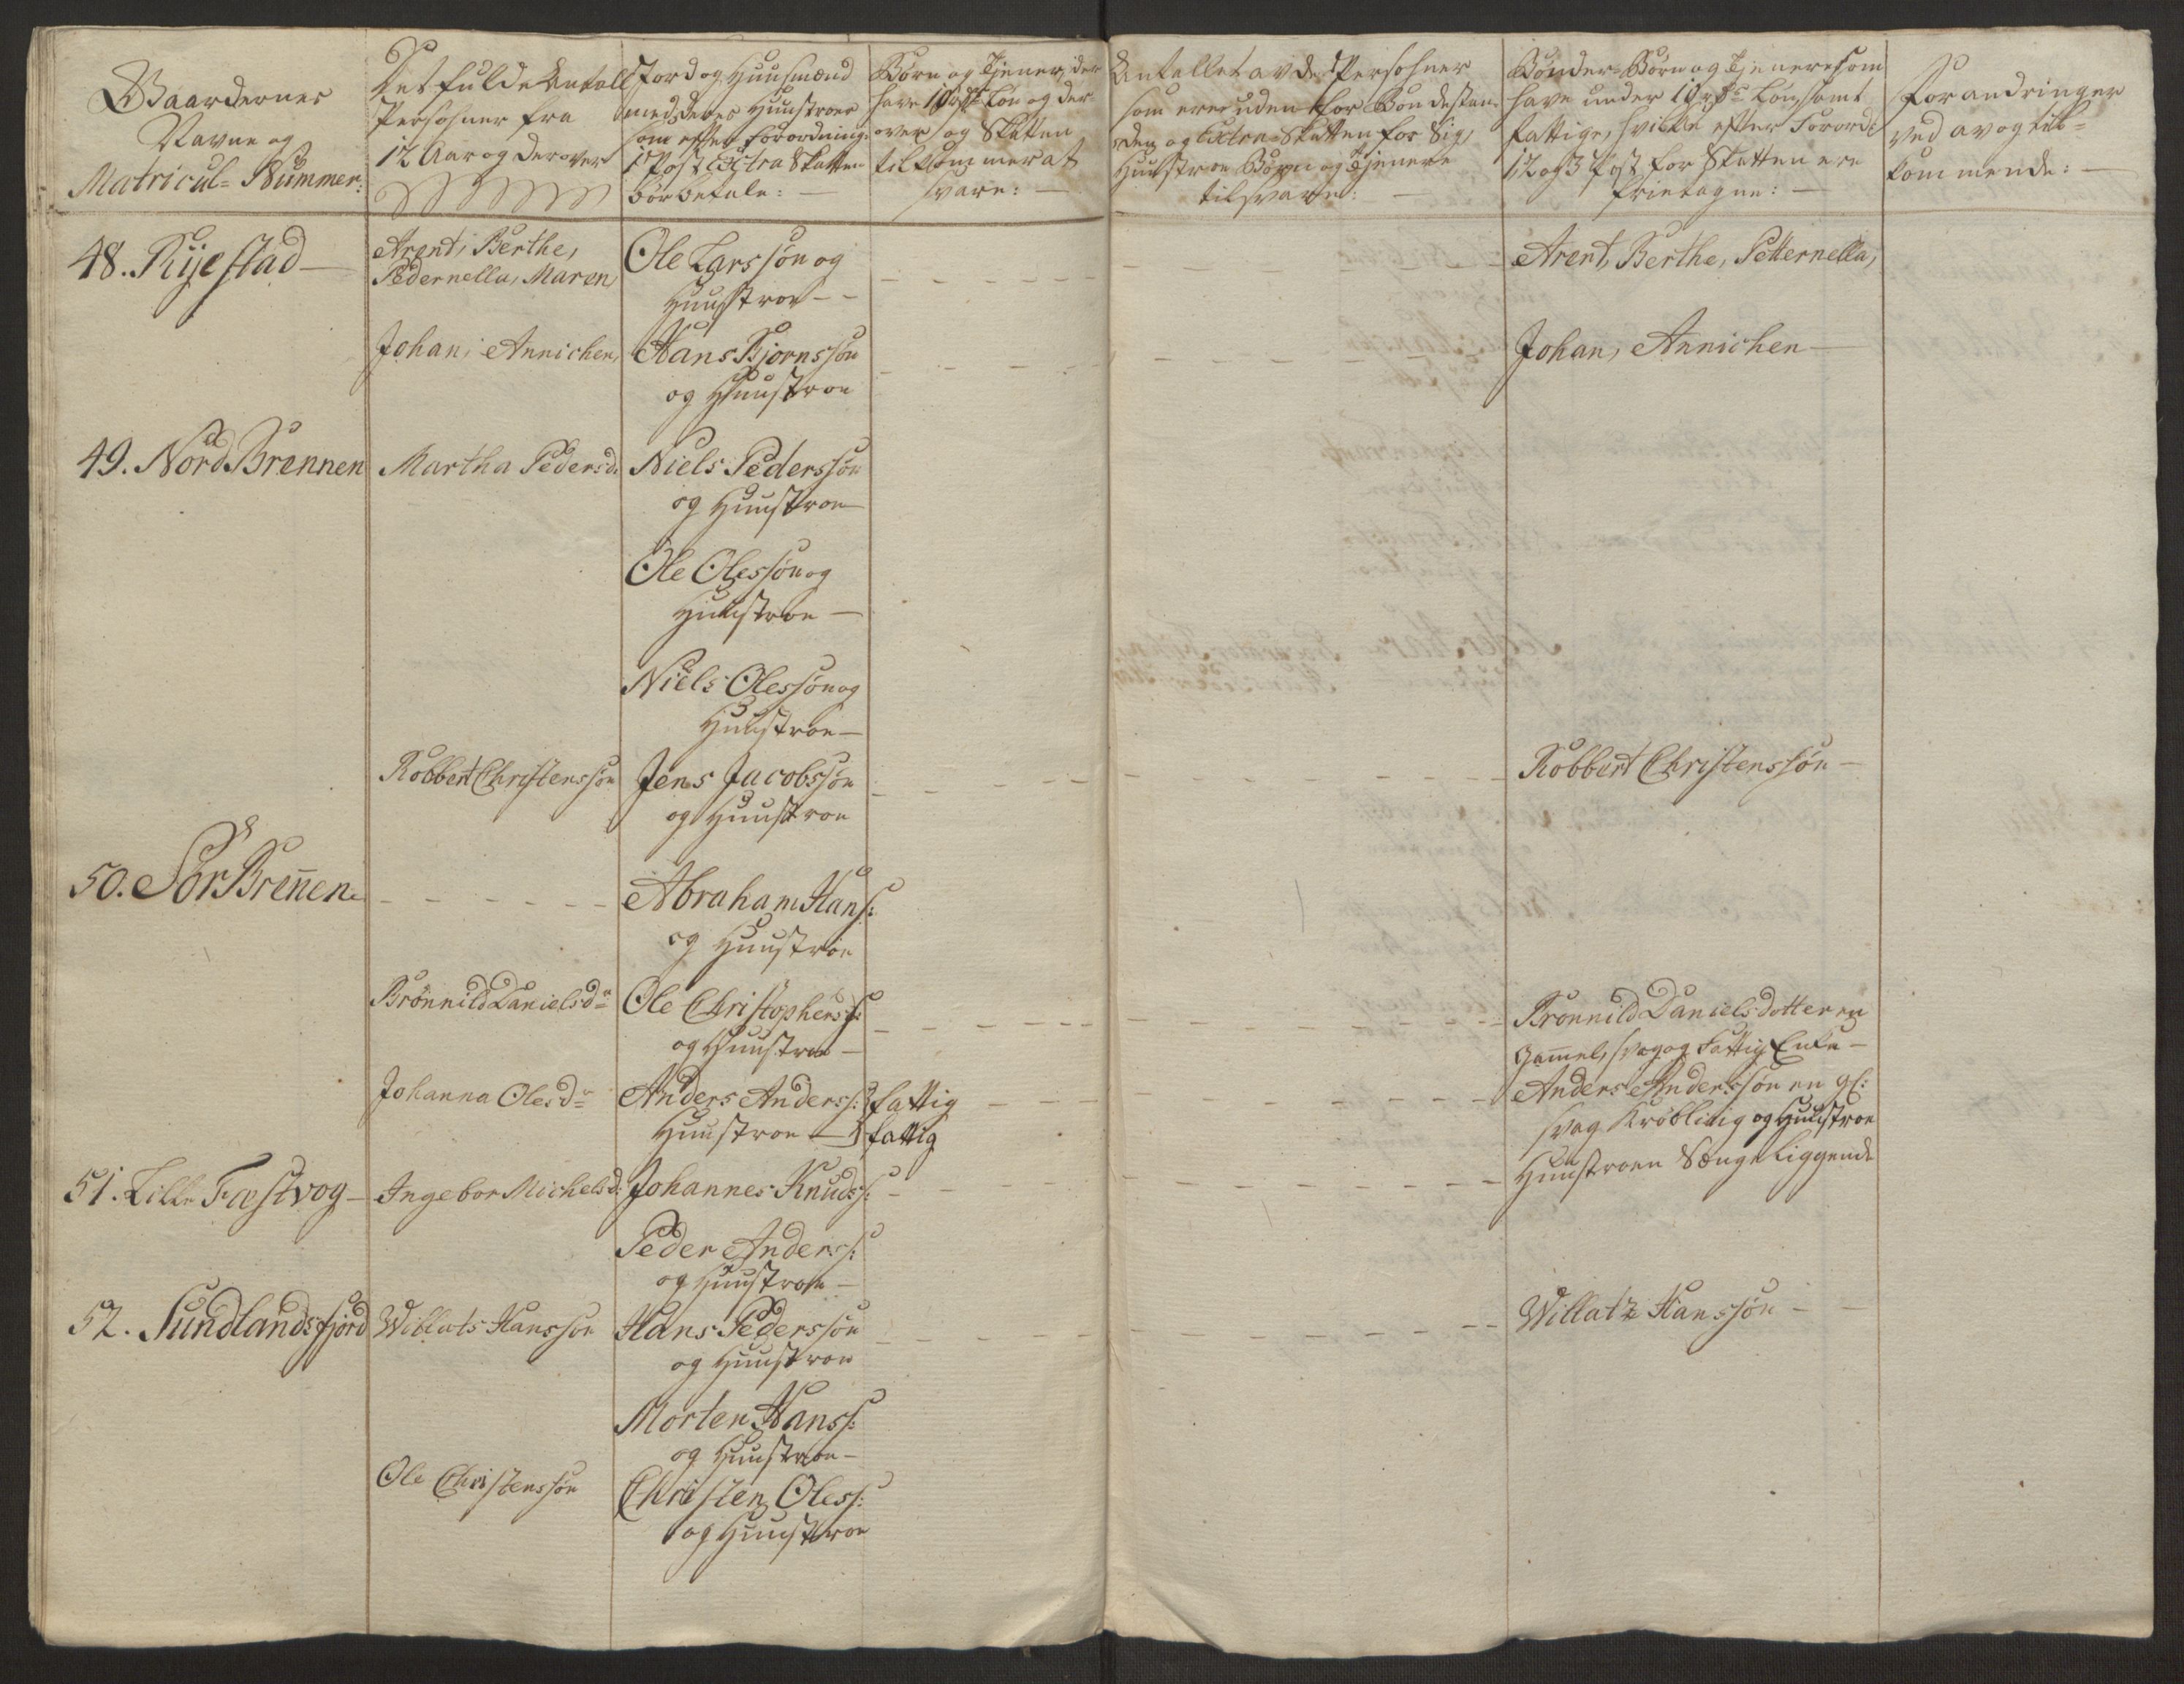 Gaardernes
Navne og
Matricul= Nummer:
Det fulde Antall
Persohner fra
12 Aar og derover
Jord og Huusmænd
med deres Huustroer
som efter Forordning:
1 Post Extra Skatten
bør betale: —
Børn og Tjener, der
have 10 rdr Løn og der
over og Skatten
tilkommer at
svare: —
Antallet av de Persohner
som ere uden for Bondestan-
den og Extra-Skatten for Sig,
Huustroe Børn og Tjenere
tilsvarer: —
Bønder-Børn og Tjenere som
have under 10 rdr Løn, samt
Fattige, hvilke efter Forord:
1, 2 og 3 Post for Skatten ere
frietagne: —
Forandringer
ved av og til-
kommende: —
48. Rijestad —
Arent, Berthe,
Pedernella, Maren
Ole Larssøn og
Huustroe - -
Arent, Berthe, Petternella,
Johan, Annichen,
Hans Bjornssøn
og Huustroe
Johan, Annichen —
49. Nord Brennen
Martha Pedersd:
Niels Pederssøn
og Huustroe —
Ole Olessøn og
Huustroe —
Niels Olessøn og
Huustroe —
Robbert Christenssøn
Jens Jacobssøn
og Huustroe
Robbert Christenssøn —
50. Sør Breñen
Abraham Hans:
og Huustroe
Brønnild Danielsdr
Ole Christophers:
og Huustroe —
Brønnild Danielsdotter en
Gam̃el, svag og Fattig Enke —
Johanna Olesdr
Anders Anders: fattig
Huustroe — fattig
Anders Anderssøn en gl:
svag Krøbling og Huustroe
Huustroen Sængeliggende
51. Lille Fæstvog —
Ingebor Michelsd:
Johannes Knuds:
Peder Anders:
og Huustroe —
52. Sundlandsfjord
Willats Hanssøn
Hans Pederssøn
og Huustroe
Willatz Hanssøn —
Morten Hans:
og Huustroe —
Ole Christenssøn
Christen Oless:
og Huustroe